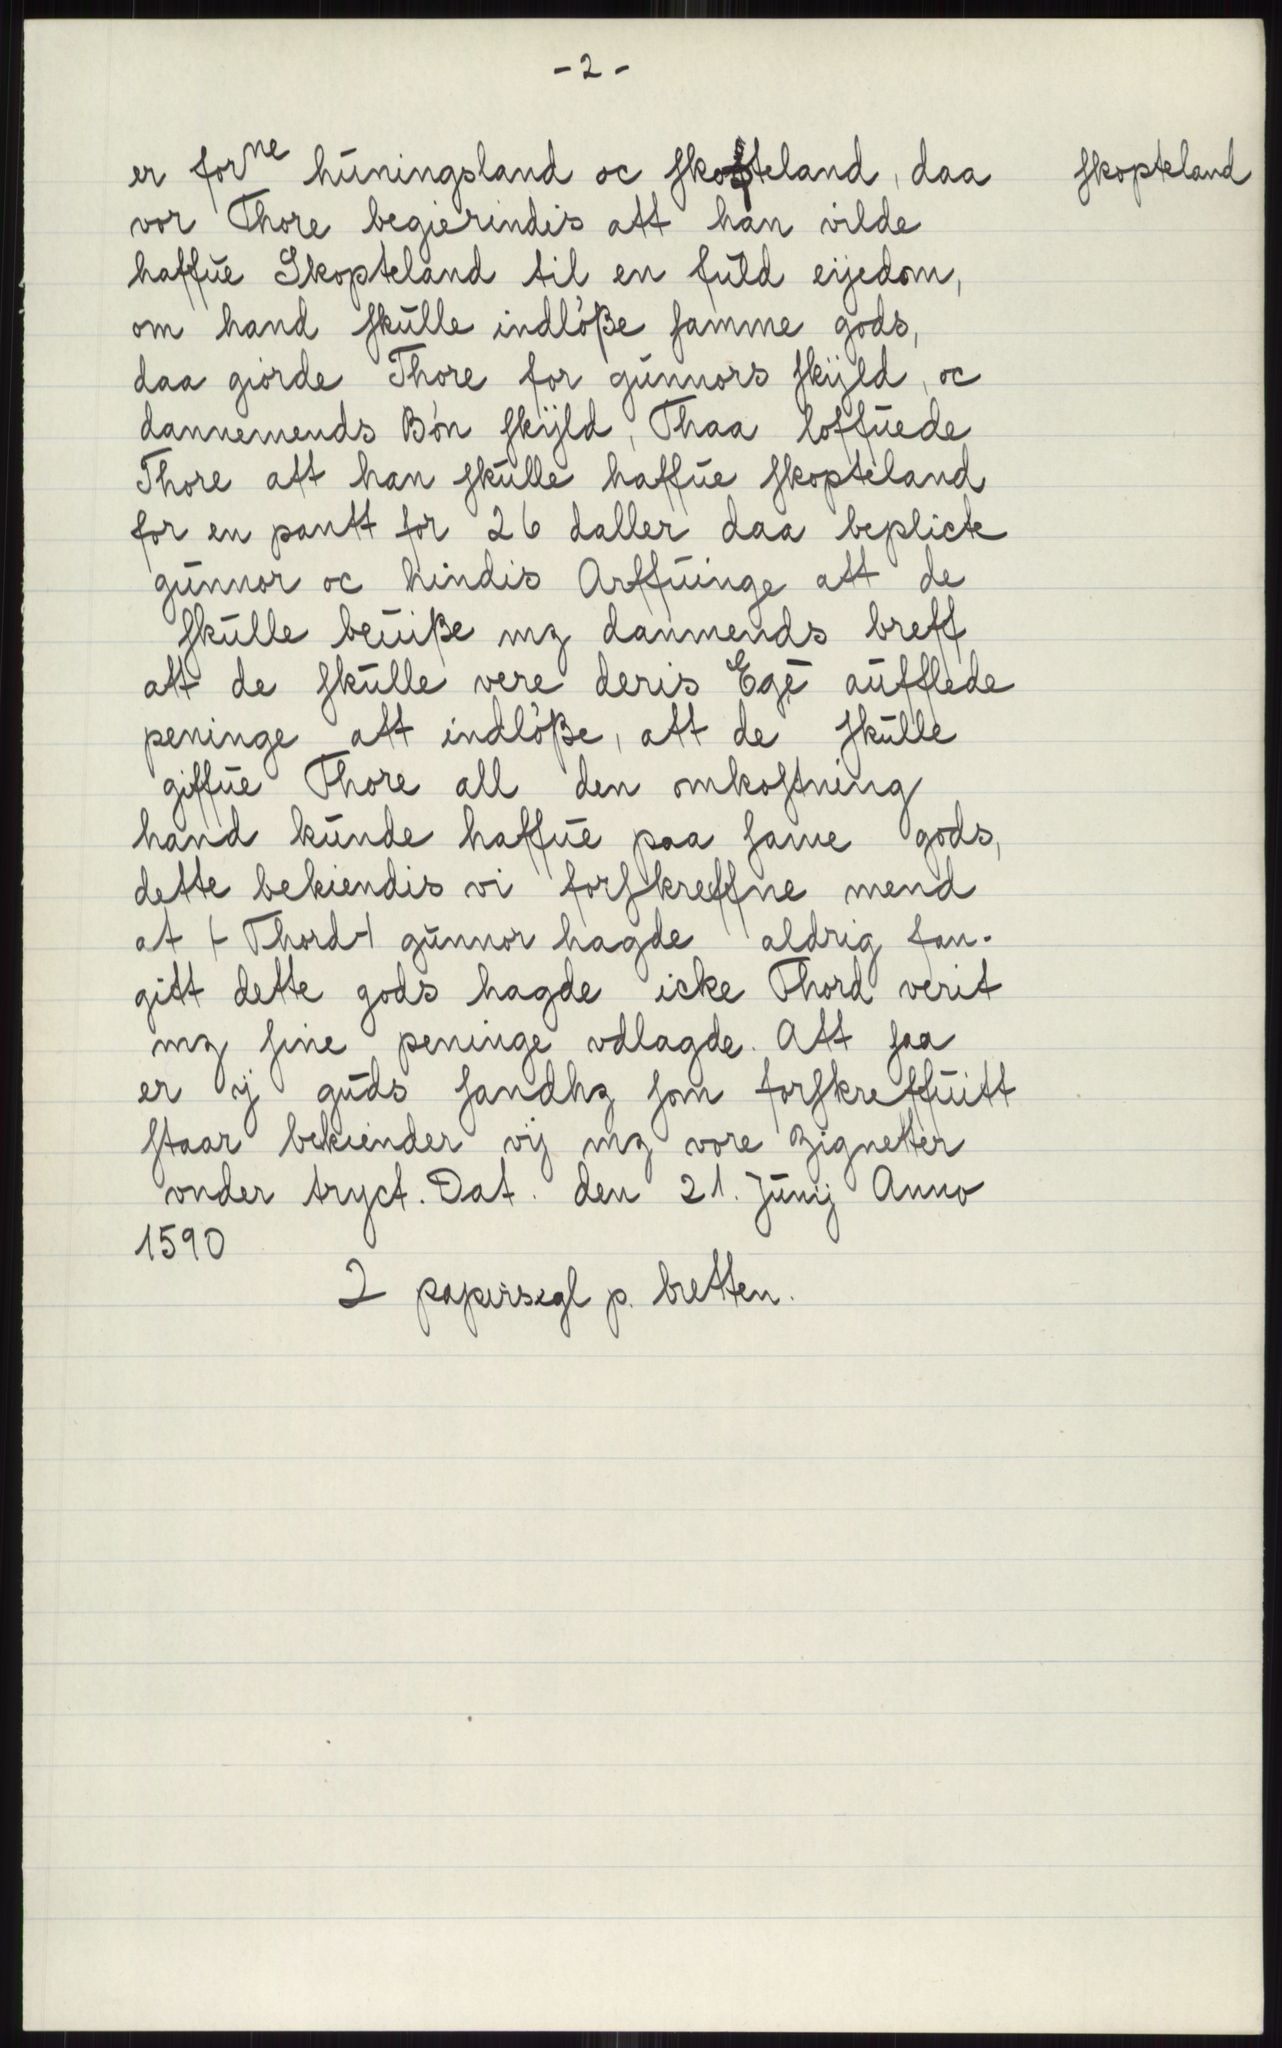 - 2 -
er forne hūningsland oc skopteland, daa skopteland
vor Thore begierindis att han vilde
haffūe Skopteland til en fūld eijedom,
om hand skūlle indlöße samme gods,
daa giorde Thore for gūnnors skÿld, oc
dannemends Bön skÿld, Thaa loffūede
Thore att han skūlle haffūe skopteland
for en pantt for 26 daller daa beplicte
gūnnor oc hindis Arffūinge att de
skūlle beūiße mz danmends breff
att de skūlle vere deris Egē aūfflede
peninge att indlöße, att de skūlle
giffūe Thore all den omkostning
hand kūnde haffūe paa same gods,
dette bekiendis vi forskreffne mend
at (-Thord-) gūnnor hagde aldrig fan-
gitt dette gods hagde icke Thord verit
mz sine peninge vdlagde. Att saa
er ij gūds sandhz som forskreffūitt
staar bekiender vij mz vore zignetter
vnder tryct. Dat. den 21. Jūnij Anno
1590
2 papirsegl p. bretten.